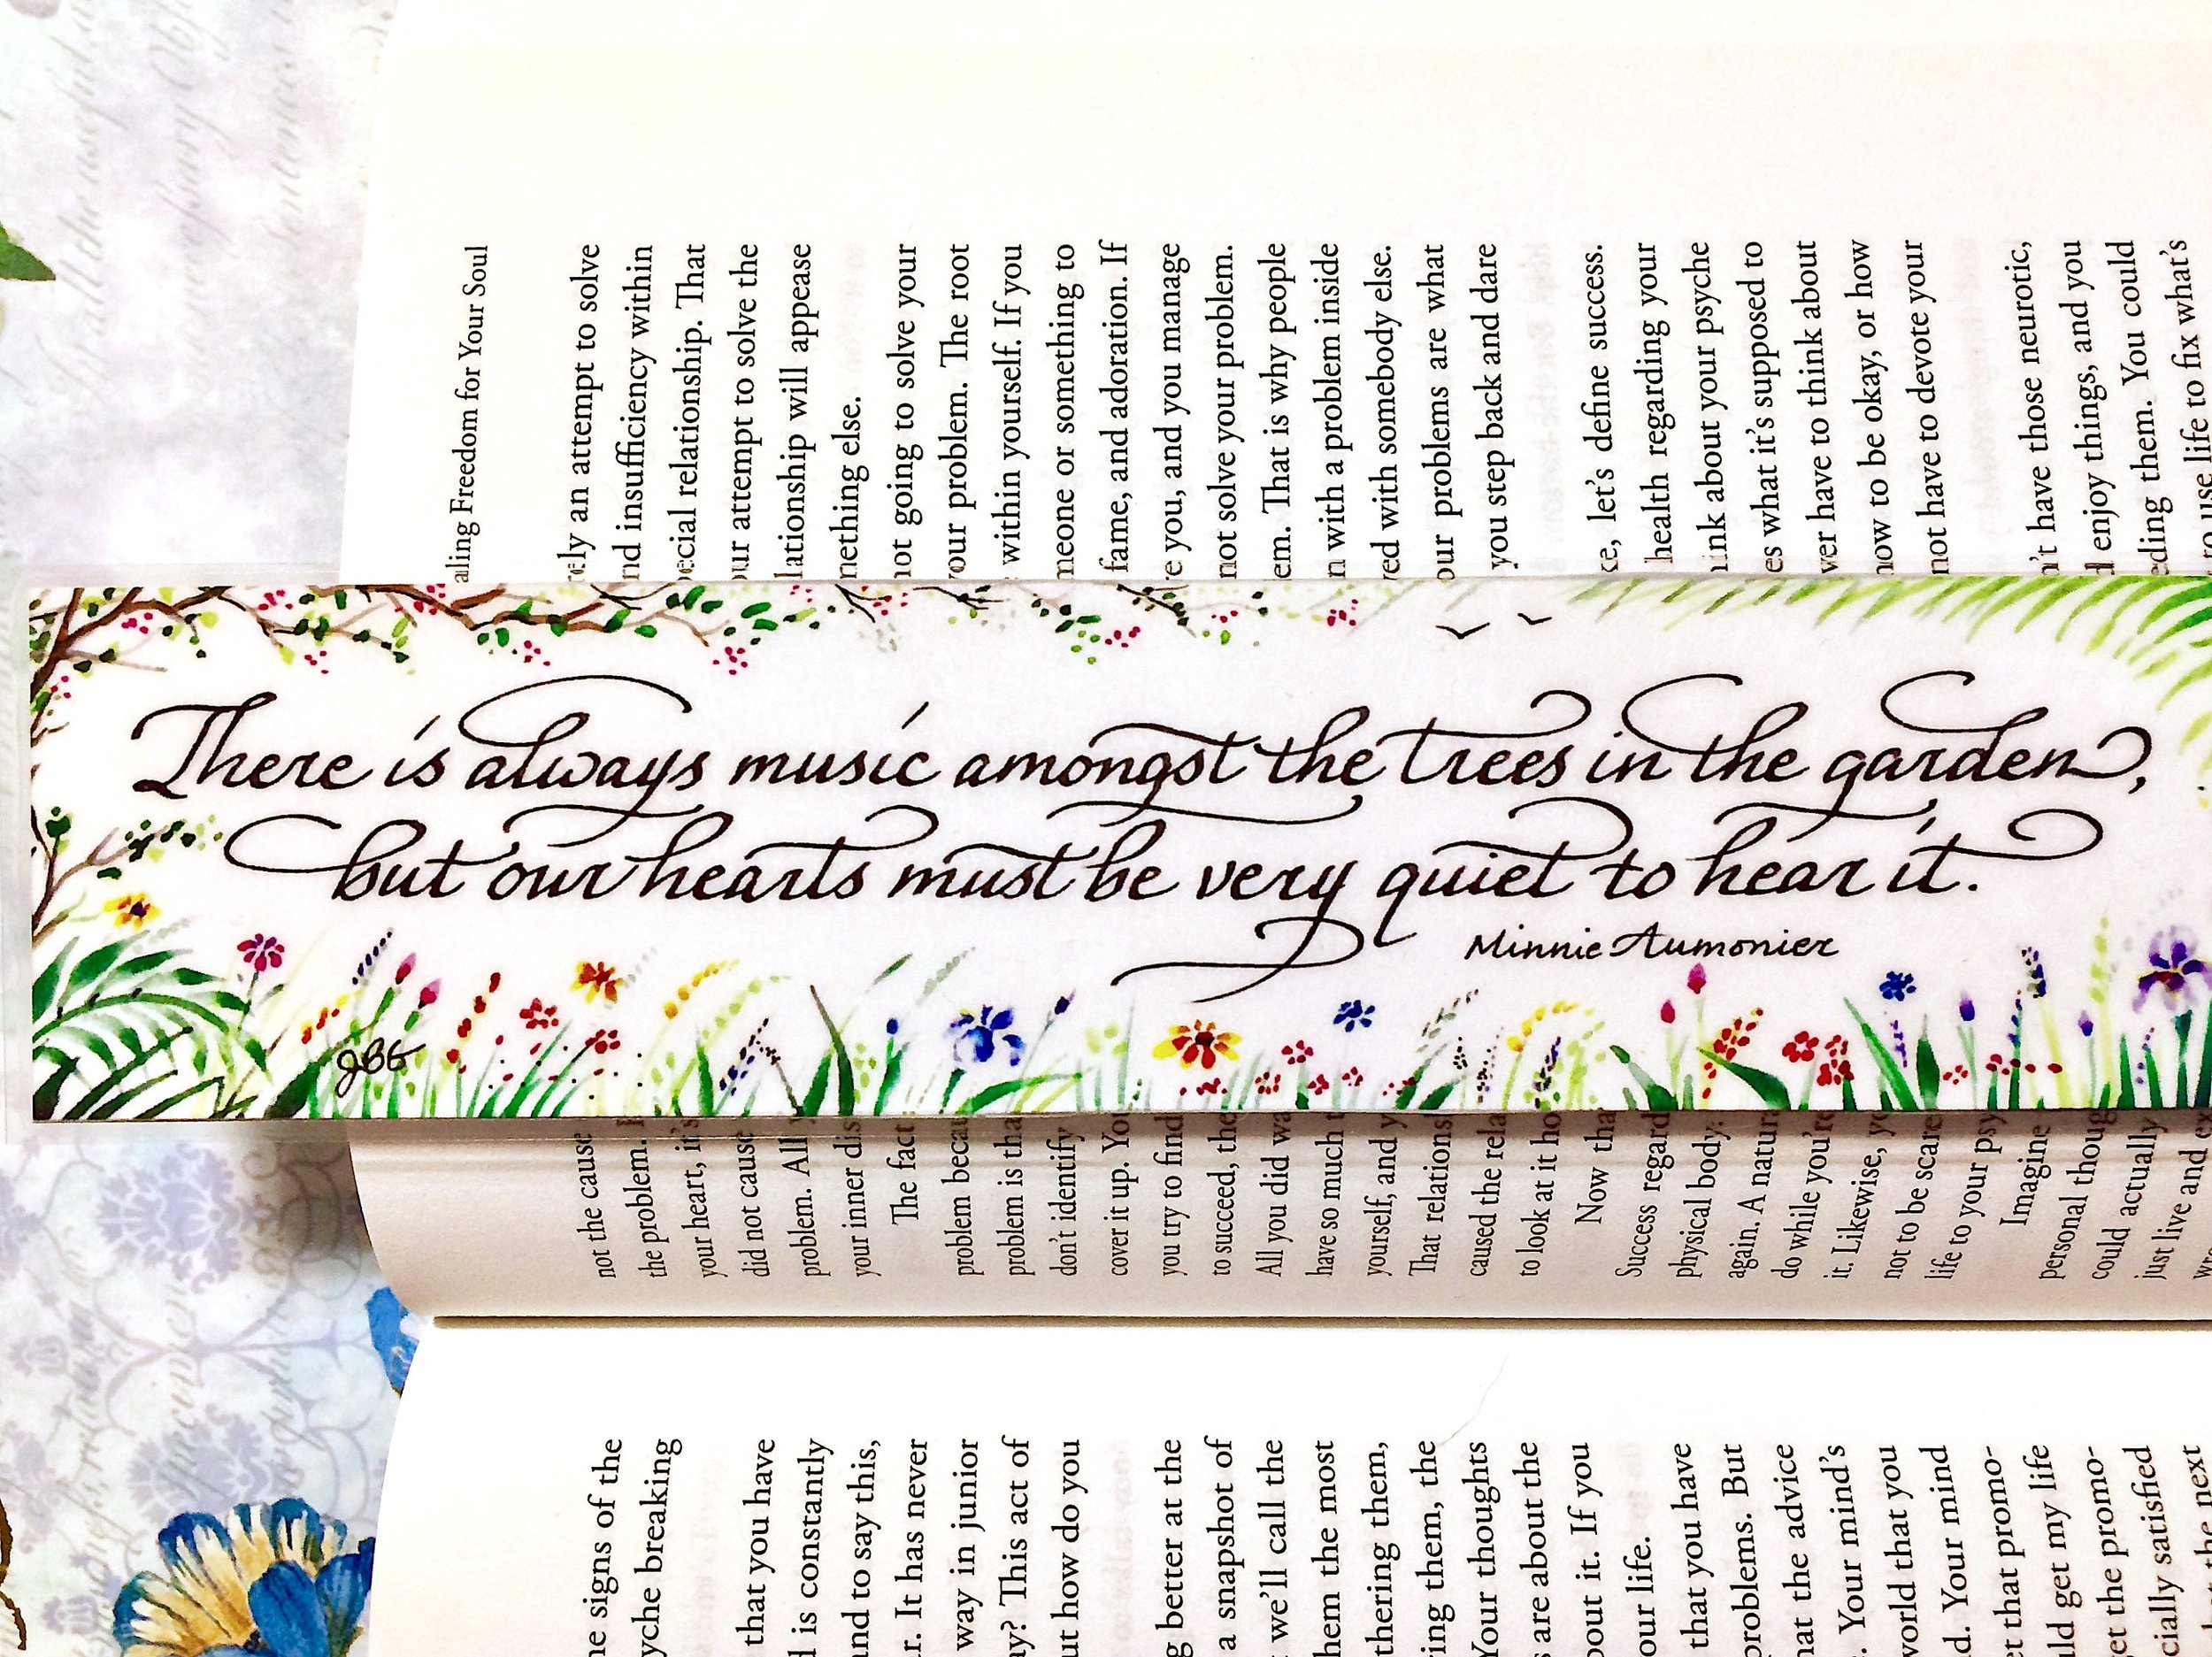 There is always music amongst the trees in the garden,
but our hearts must be very quiet to hear it.
Minnie Aumonier
JBG
ling Freedom for Your Soul
ely an attempt to solve
nd insufficiency within
ecial relationship. That
ur attempt to solve the
lationship will appease
nething else.
not going to solve your
our problem. The root
within yourself. If you
meone or something to
fame, and adoration. If
e you, and you manage
not solve your problem.
em. That is why people
n with a problem inside
ved with somebody else.
our problems are what
you step back and dare
ke, let's define success.
health regarding your
ink about your psyche
es what it's supposed to
ver have to think about
now to be okay, or how
not have to devote your
n't have those neurotic,
d enjoy things, and you
eding them. You could
to use life to fix what's
not the cause
the problem.
your heart, it's
did not cause
problem. All
your inner dis
The fact
problem becau
problem is tha
don't identify
cover it up. You
you try to find
to succeed, the
All you did wa
have so much t
yourself, and y
That relations
caused the rela
to look at it ho
Now tha
Success regard
physical body.
again. A natur
do while you're
it. Likewise, yo
not to be scare
life to your psy
Imagine
personal thoug
could actually
just live and ex
ne signs of the
yche breaking
that you have
d is constantly
and to say this,
r. It has never
way in junior
ay? This act of
ut how do you
g better at the
a snapshot of
we'll call the
hem the most
thering them,
ring them, the
Your thoughts
s are about the
bout it. If you
our life.
that you have
problems. But
hat the advice
. Your mind's
world that you
d. Your mind
et that promo-
uld get my life
get the promo-
cially satisfied
the next